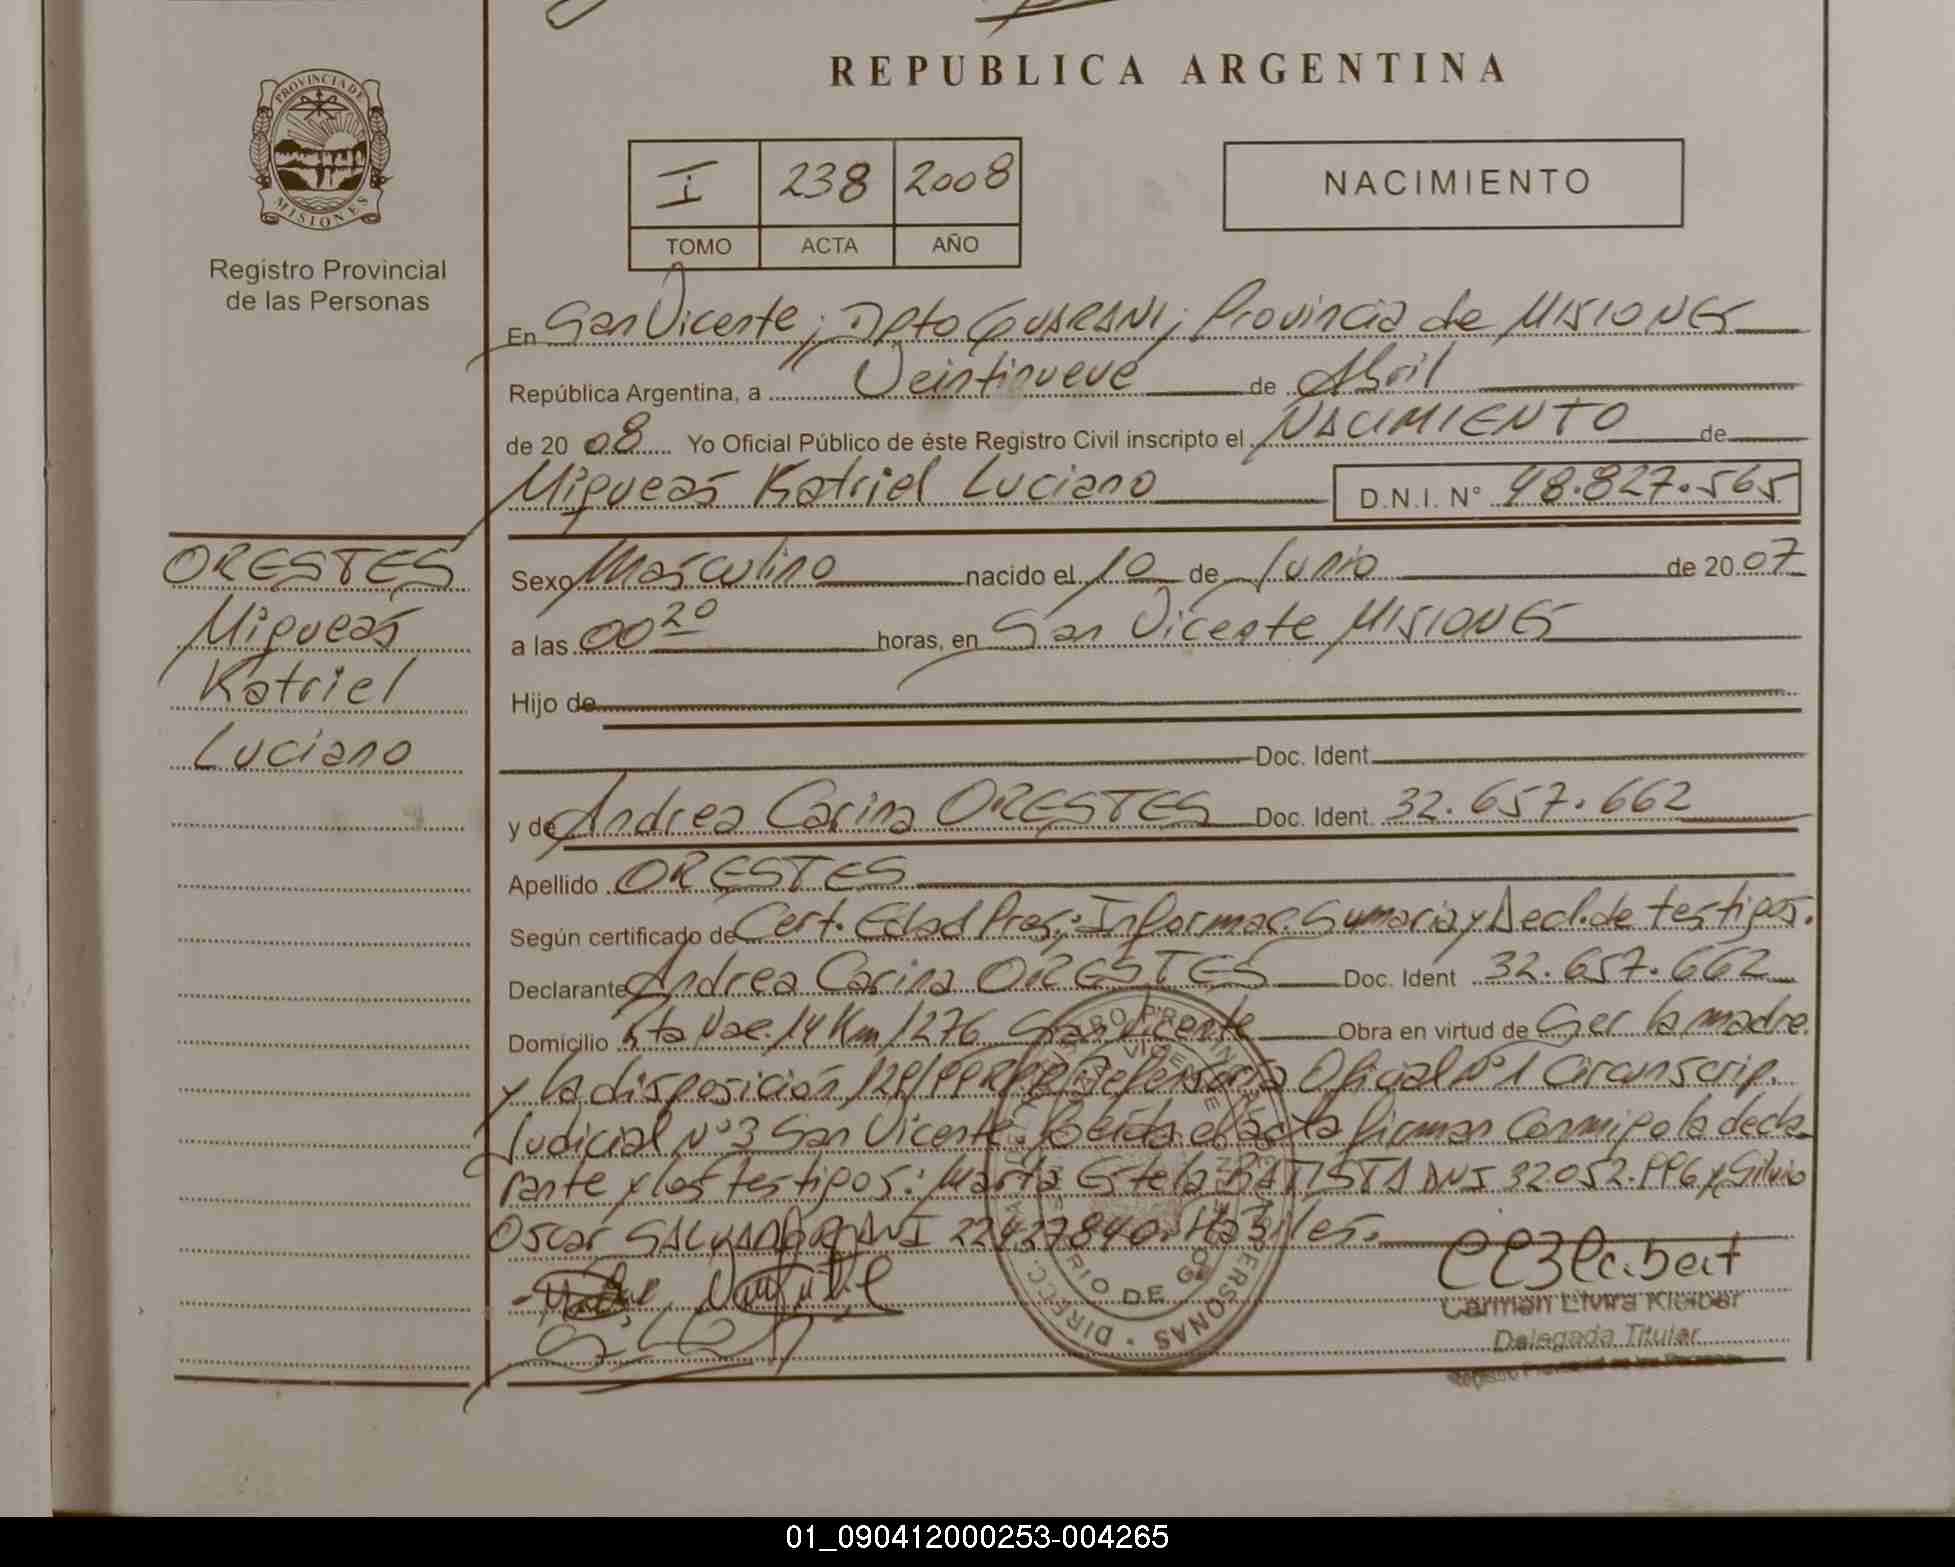 REPUBLICA ARGENTINA
PROVINCIA DE
MISIONES
Registro Provincial
de las Personas
I 238 2008
TOMO ACTA AÑO
NACIMIENTO
En San Vicente; Dpto GUARANI; Provincia de MISIONES
República Argentina, a Veintinueve de Abril
de 20 08 Yo Oficial Público de éste Registro Civil inscripto el NACIMIENTO de
Migueas Katriel Luciano D.N.I. N° 48.827.565
ORESTES
Migueas
Katriel
Luciano
Sexo Masculino nacido el 10 de Junio de 20 07
a las 00 20 horas, en San Vicente MISIONES
Hijo de
Doc. Ident.
y de Andrea Carina ORESTES Doc. Ident. 32.657.662
Apellido ORESTES
Según certificado de Cert. Edad Pres; Informac. Sumaria y Decl. de testigos.
Declarante Andrea Carina ORESTES Doc. Ident 32.657.662
Domicilio Nac. 14 Km 1276 San Vicente Obra en virtud de Ser la madre
y la disposición Defensoría Oficial N°1 Circunscrip.
Judicial N°3 San Vicente. el acta firman Conmigo la decla
rante y los testigos: Marta Estela BATISTA DNI 32.052.996 y Silvio
Oscar DNI 22427840. Habiles.
Carmen Elvira Kleiber
Delegada Titular
01_090412000253-004265